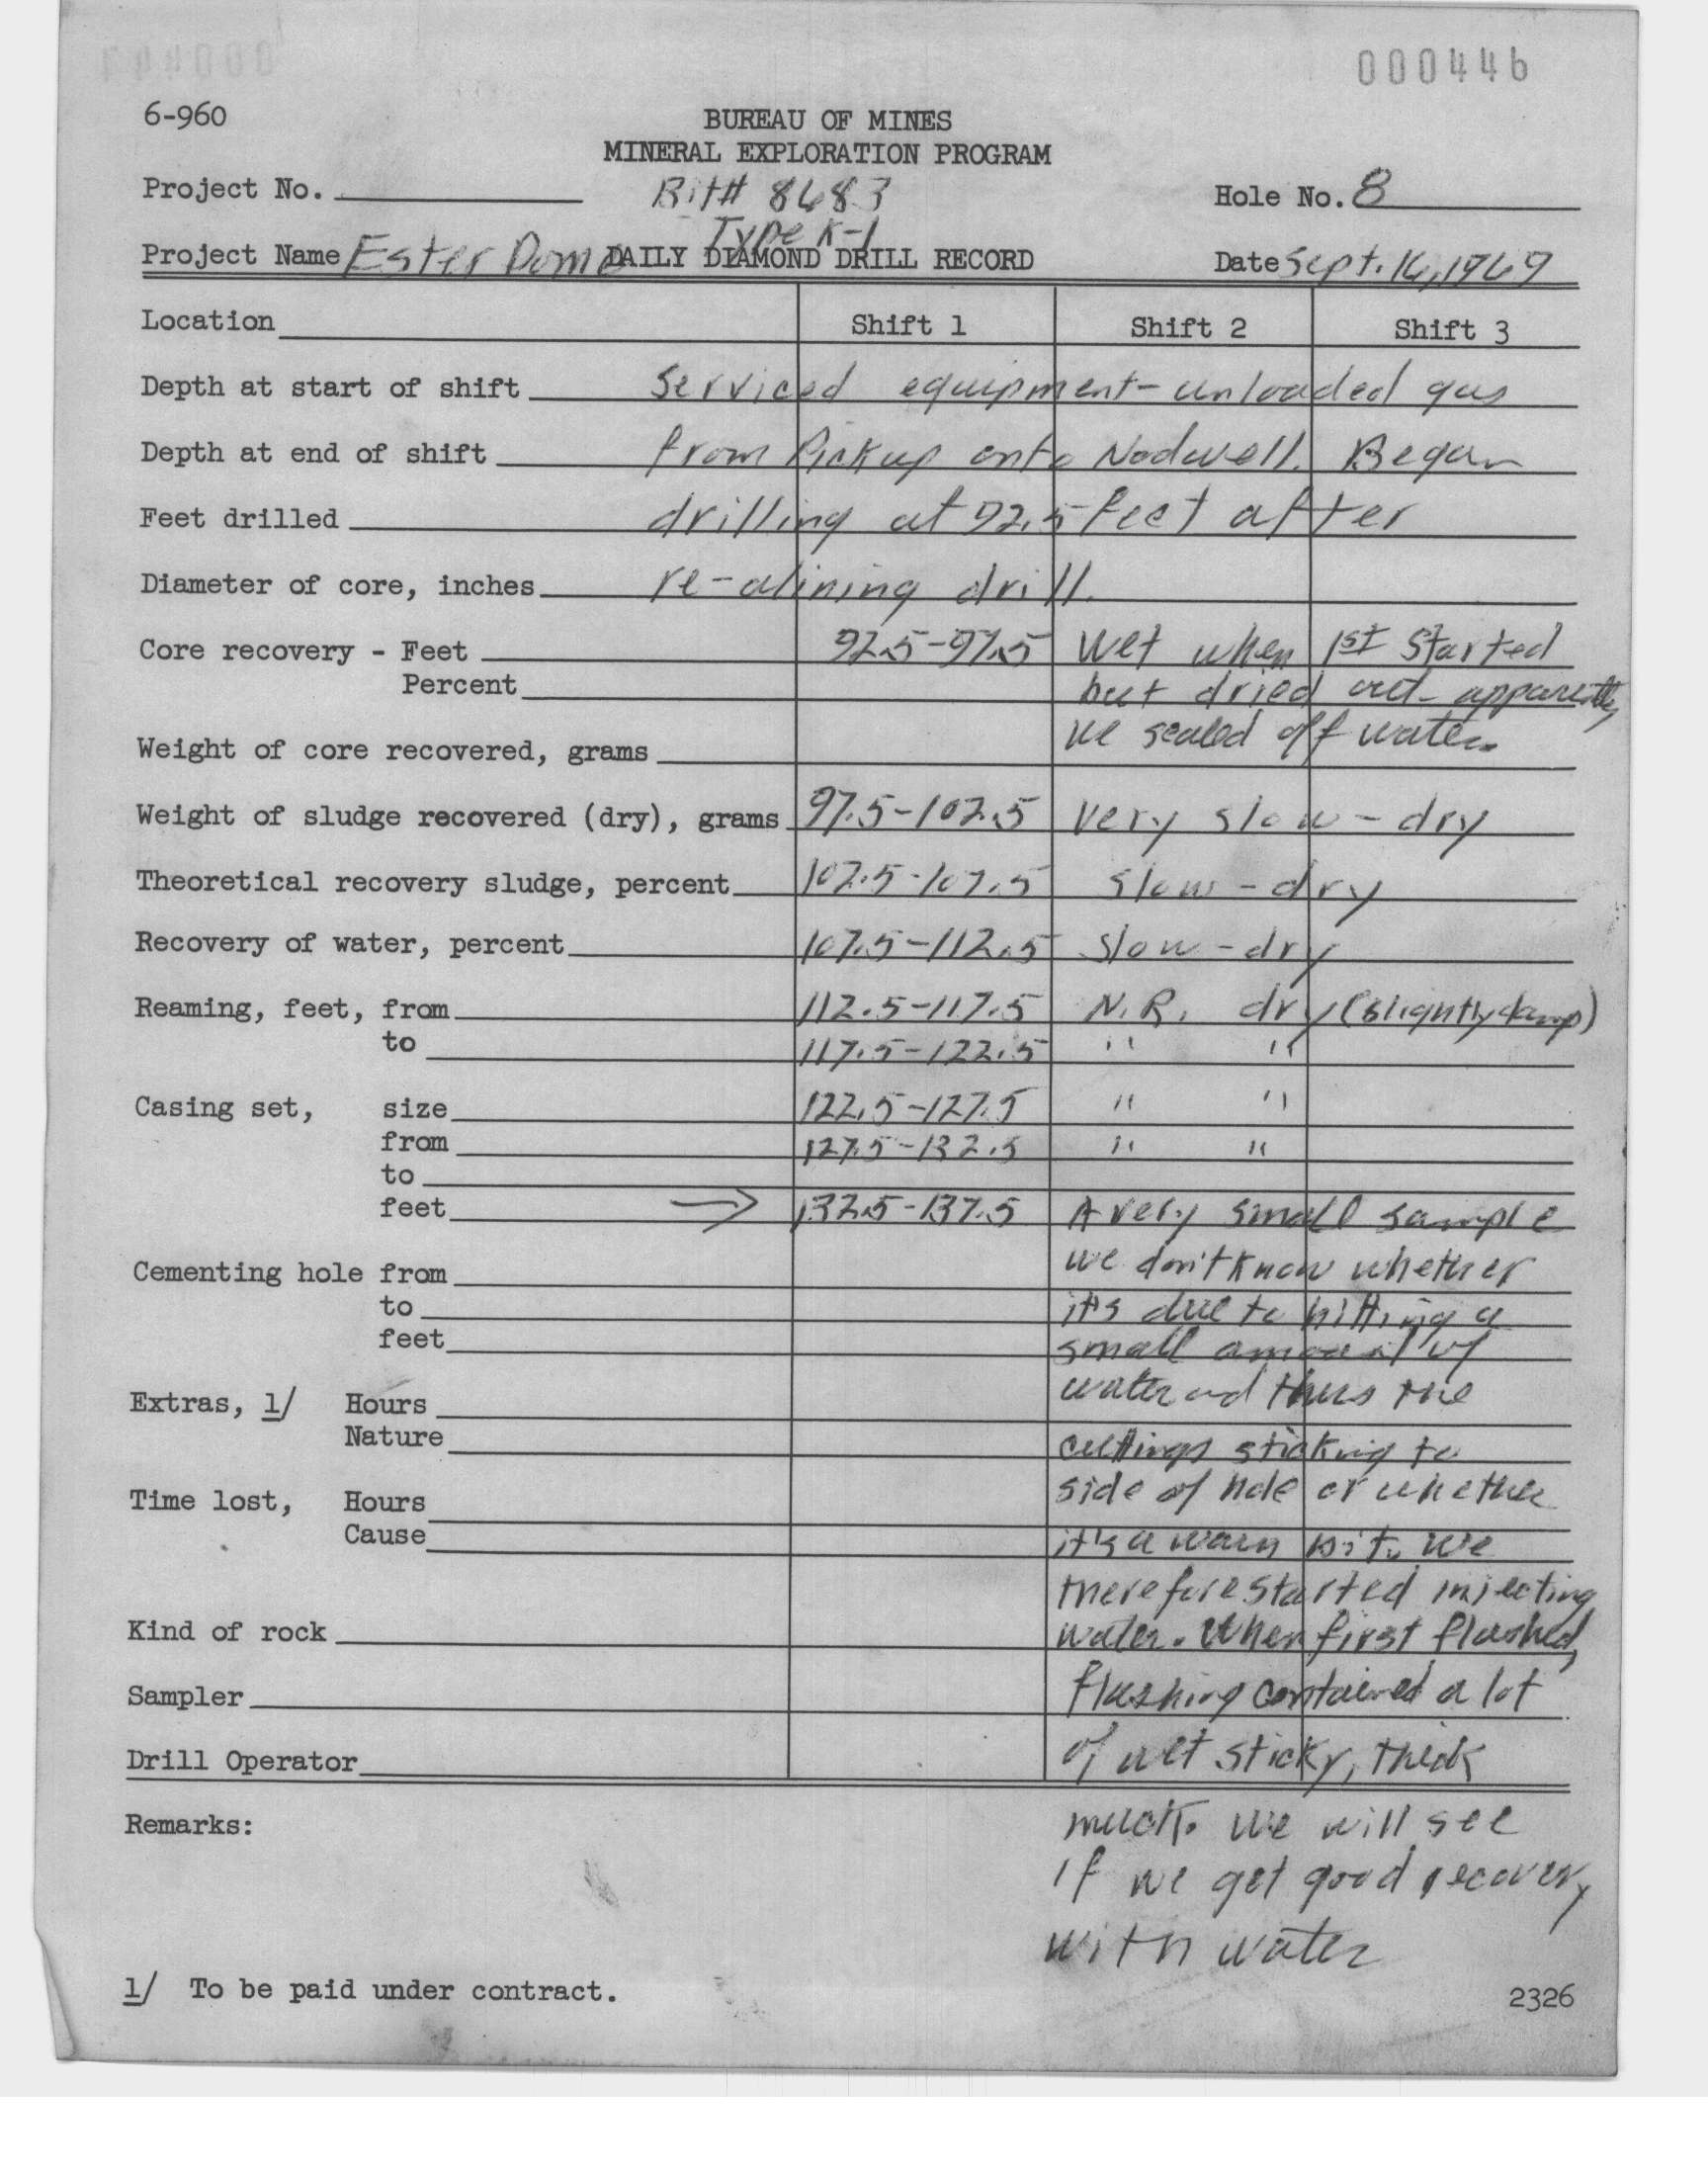 000446
6-960
BUREAU OF MINES
MINERAL EXPLORATION PROGRAM
Project No. Bit# 8683 Hole No. 8
Type K-1
Project Name Ester Dome DAILY DIAMOND DRILL RECORD Date Sept. 16, 1969
Location Shift 1 Shift 2 Shift 3
Depth at start of shift Serviced equipment - unloaded gas
Depth at end of shift from Pickup onto Nodwell. Began
Feet drilled drilling at 92.5 feet after
Diameter of core, inches re-alining drill.
Core recovery - Feet 92.5-97.5 Wet when 1st Started
Percent but dried out - apparently
we sealed off water.
Weight of core recovered, grams
Weight of sludge recovered (dry), grams 97.5-102.5 very slow - dry
Theoretical recovery sludge, percent 102.5-107.5 slow - dry
Recovery of water, percent 107.5-112.5 slow - dry
Reaming, feet, from 112.5-117.5 N.R. dry (slightly damp)
to 117.5-122.5 " "
Casing set, size 122.5-127.5 " "
from 127.5-132.5 " "
to
feet → 132.5-137.5 A very small sample
Cementing hole from we don't know whether
to it's due to hitting a
feet small amount of
Extras, 1/ Hours water and thus the
Nature cuttings sticking to
Time lost, Hours side of hole or whether
Cause it's a warn bit. We
therefore started injecting
Kind of rock water. When first flushed,
Sampler flushing contained a lot
Drill Operator of wet sticky, thick
Remarks: muck. We will see
if we get good recovery
with water
1/ To be paid under contract. 2326